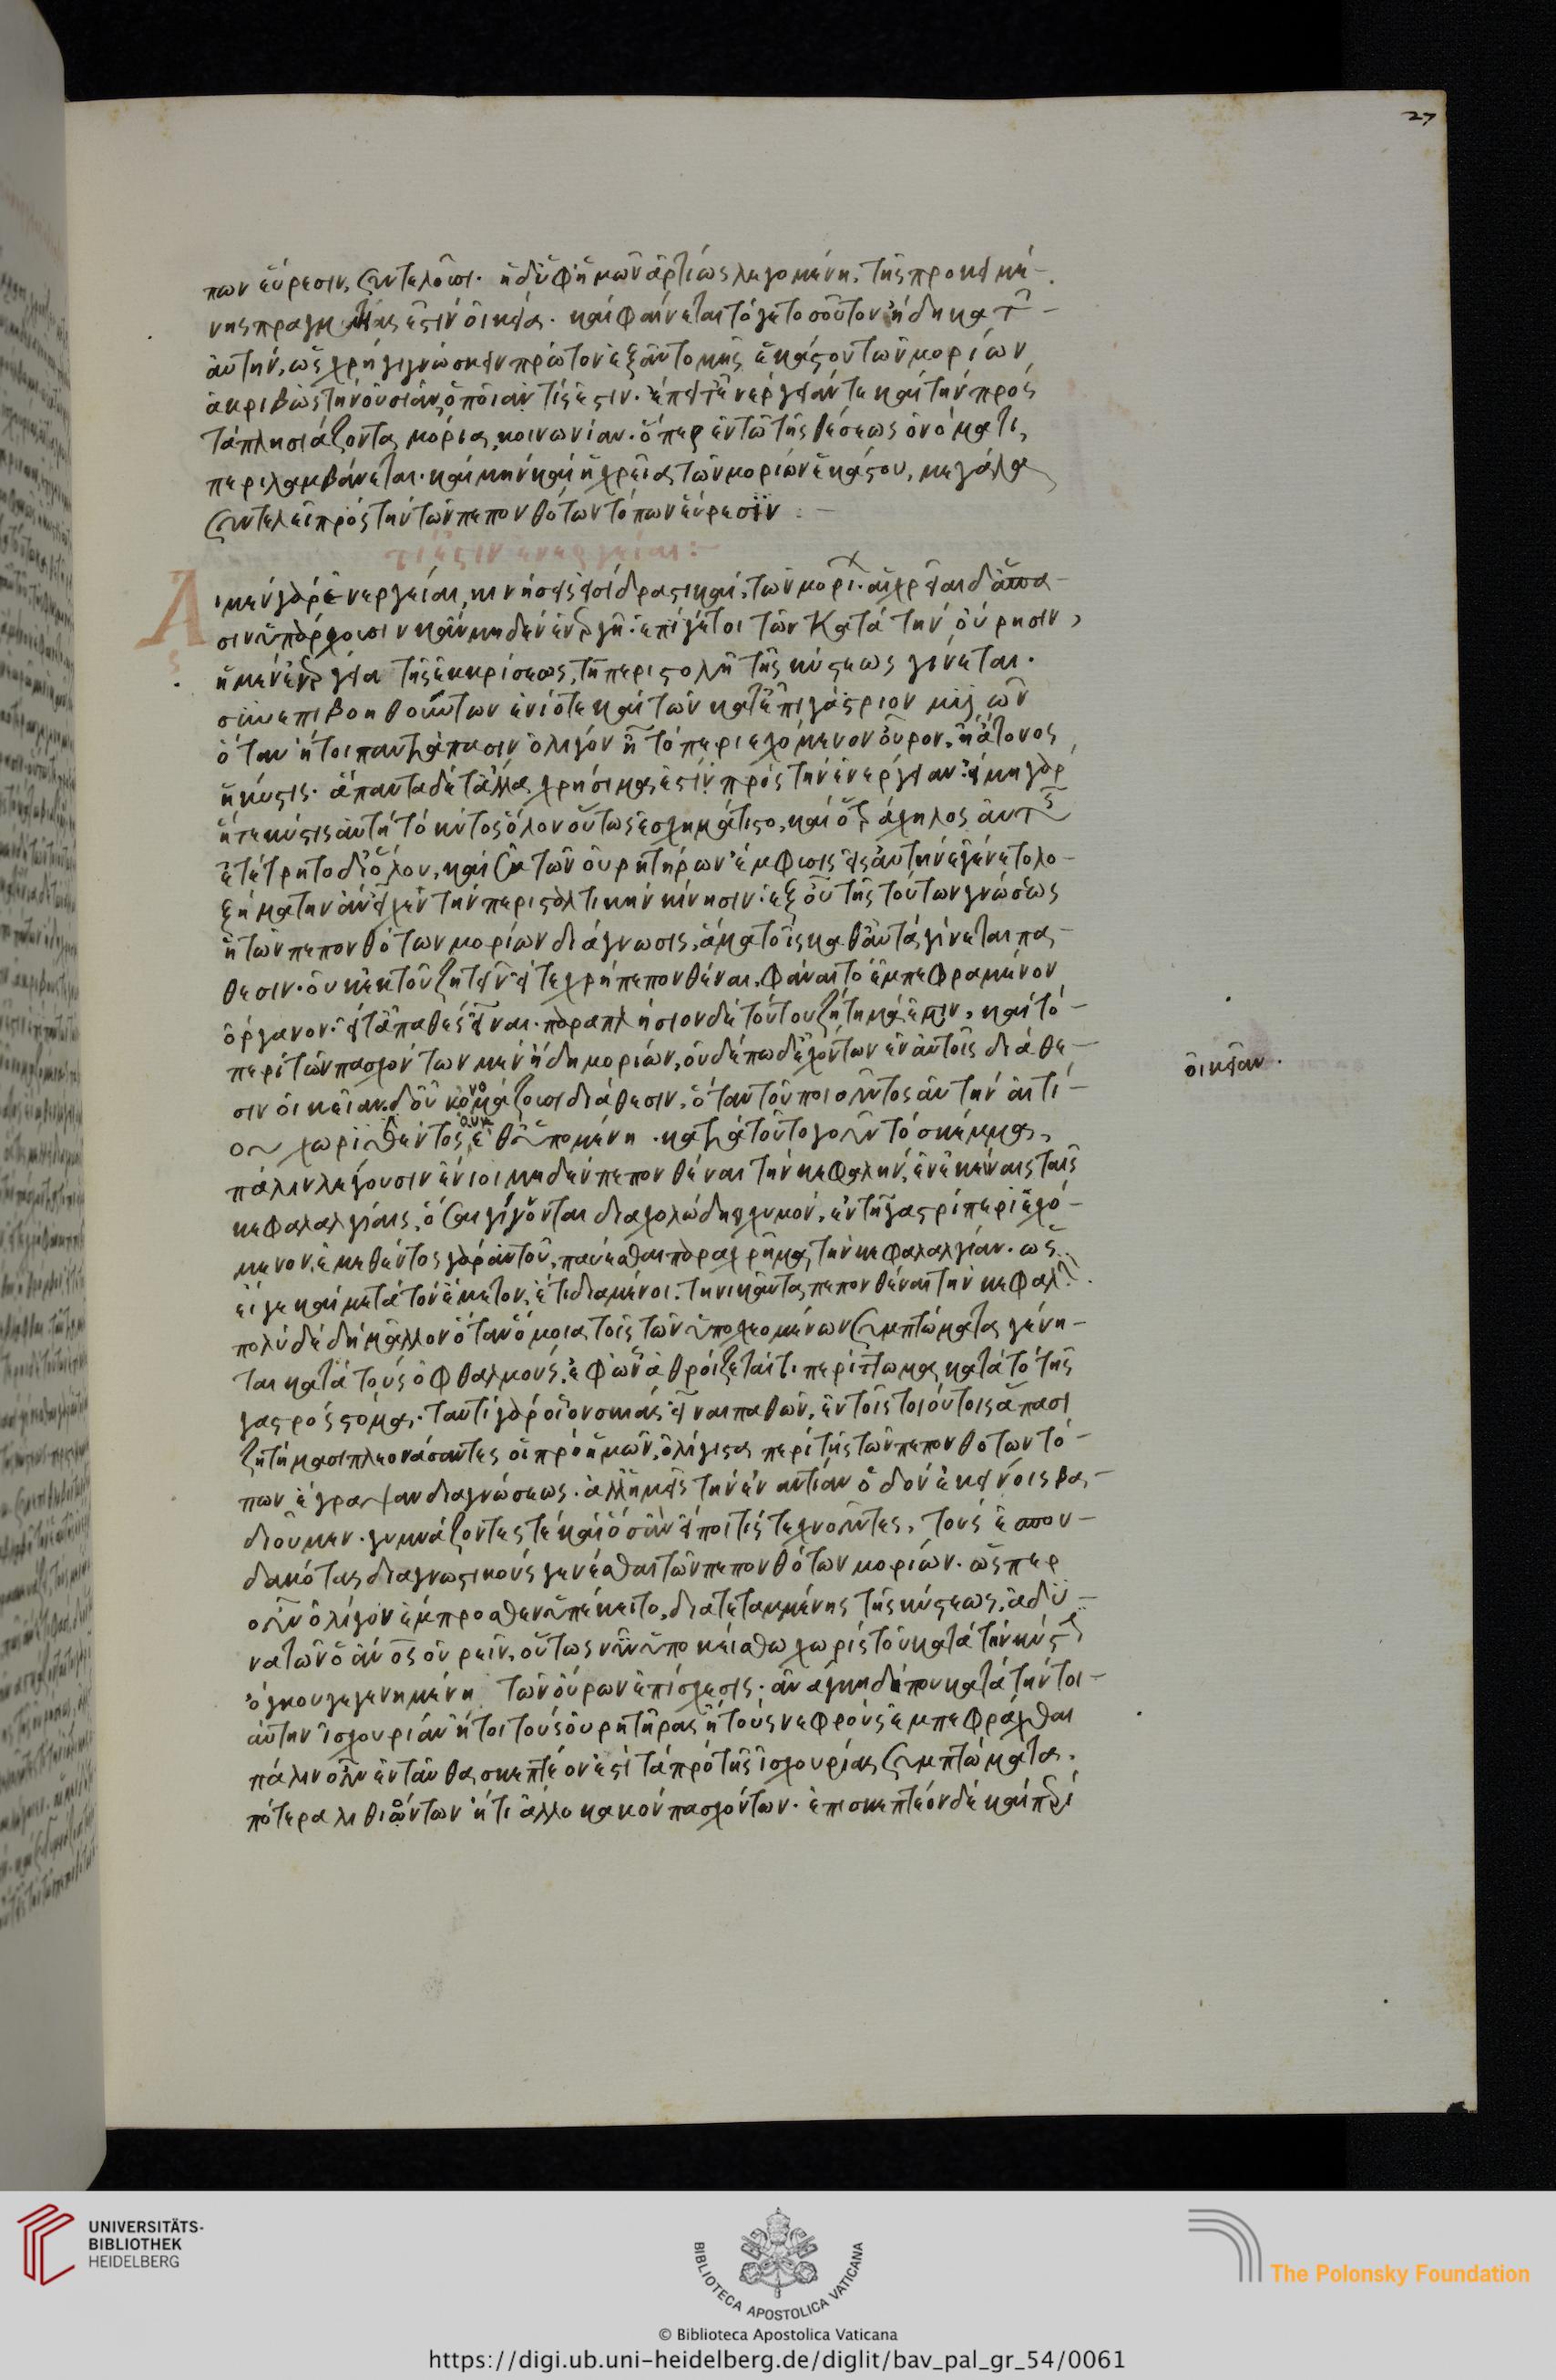 27
πων εὕρεσιν, συντελοῦσι. ἡ δ' ὑφ' ἡμῶν ἀρτίως λεγομένη, τῆς προκειμέ-
νης πραγματείας ἐστὶν οἰκεία. καὶ φαίνεται τό γε τοσοῦτον ἤδη κατ'
αὐτὴν, ὡς χρὴ γιγνώσκειν πρῶτον ἐξ ἀνατομῆς ἑκάστου τῶν μορίων
ἀκριβῶς τὴν οὐσίαν, ὁποία τίς ἐστιν. ἔπειτ' ἐνέργειάν τε καὶ τὴν πρὸς
τὰ πλησιάζοντα μόρια κοινωνίαν. ὅπερ ἐν τῷ τῆς θέσεως ὀνόματι,
περιλαμβάνεται. καὶ μὴν καὶ ἡ χρεία τῶν μορίων ἑκάστου, μεγάλα
συντελεῖ πρὸς τὴν τῶν πεπονθότων τόπων εὕρεσιν :-
τί ἐστιν ἐνέργειαι :-
Αἱ μὲν γὰρ ἐνέργειαι, κινήσεις εἰσὶ δραστικαὶ, τῶν μορί. αἱ χρεῖαι δ' ἅπα-
σιν ὑπάρχουσιν κἂν μηδὲν ἐνεργῇ. ἐπί γέ τοι τῶν κατὰ τὴν οὔρησιν,
ἡ μὲν ἐνέργεια τῆς ἐκκρίσεως, τῇ περιστολῇ τῆς κύστεως γίνεται.
συνεπιβοηθούντων ἐνίοτε καὶ τῶν κατ' ἐπιγάστριον μυῶν
ὅταν ἤτοι παντάπασιν ὀλίγον ᾖ τὸ περιεχόμενον οὖρον, ἢ ἄτονος
ἡ κύστις. ἅπαντα δὲ τἄλλα χρήσιμά ἐστιν πρὸς τὴν ἐνέργειαν. εἰ μὴ γὰρ
ἥ τε κύστις αὐτὴ τὸ κύτος ὅλον οὕτως ἐσχημάτιστο, καὶ ὅ τ' αὐχὴν αὐτῆς
ἐτέτρητο δι' ὅλου, καὶ ἐκ τῶν οὐρητήρων ἔμφυσις εἰς αὐτὴν ἐγένετο λο-
ξὴ μάτην ἂν εἶχεν τὴν περισταλτικὴν κίνησιν. ἐξ οὗ τῆς τούτων γνώσεως
ἡ τῶν πεπονθότων μορίων διάγνωσις, ἅμα τοῖς καθ' αὑτὰ γίνεται πά-
θεσιν. οὐκ ἐκ τοῦ ζητεῖν εἴτε χρὴ πεπονθέναι, φάναι τὸ ἐμπεφραμένον
ὄργανον. εἴτ' ἀπαθὲς εἶναι. παραπλήσιον δὲ τούτου ζήτημά ἐστιν, καὶ τὸ
περὶ τῶν πασχόντων μὲν ἤδη μορίων, οὐδέπω δ' ἐχόντων ἐν αὑτοῖς διάθε-
σιν οἰκείαν. δ' οὖν ὀνομάζουσι διάθεσιν, ὅταν τοῦ ποιοῦντος αὐτὴν αἰτί-
ου χωρισθέντος, οὐκ εὐθὺς ἑπομένη. κατὰ τοῦτο γοῦν τὸ σκέμμα,
πάλιν λέγουσιν ἔνιοι μηδὲν πεπονθέναι τὴν κεφαλὴν, ἐν ἐκείναις ταῖς
κεφαλαλγίαις, ὅσαι γίγνονται διὰ χολώδη χυμὸν, ἐν τῇ γαστρὶ περιεχό-
μενον. ἐμεθέντος γὰρ αὐτοῦ, παύεσθαι παραχρῆμα τὴν κεφαλαλγίαν. ὡς
εἴ γε καὶ μετὰ τὸν ἔμετον, ἔτι διαμένοι. τηνικαῦτα πεπονθέναι τὴν κεφαλ.
πολὺ δὲ δὴ μᾶλλον ὅταν ὅμοια τοῖς τῶν ὑποχεομένων συμπτώματα γένη-
ται κατὰ τοὺς ὀφθαλμούς. ἐφ' ὧν ἀθροίζεταί τι περίττωμα κατὰ τὸ τῆς
γαστρὸς στόμα. ταυτὶ γὰρ οἷον σκιὰς εἶναι παθῶν, ἐν τοῖς τοιούτοις ἅπασι
ζητήμασι πλεονάσαντες οἱ πρὸ ἡμῶν, ὀλίγιστα περὶ τῆς τῶν πεπονθότων τό-
πων ἔγραψαν διαγνώσεως. ἀλλ' ἡμεῖς τὴν ἐναντίαν ὁδὸν ἐκείνοις βα-
διοῦμεν. γυμνάζοντες τε καὶ ὡσὰν εἴποι τις τεχνοῦντες, τοὺς ἐσπου-
δακότας διαγνωστικοὺς γενέσθαι τῶν πεπονθότων μορίων. ὥσπερ
οὖν ὀλίγον ἔμπροσθεν ὑπέκειτο, διατεταμένης τῆς κύστεως, ἀδυ-
νατῶν ὁ ἄνος οὐρεῖν, οὕτως νῦν ὑποκείσθω χωρὶς τοῦ κατὰ τὴν κύστιν
ὄγκου γεγενημένη τῶν οὔρων ἐπίσχεσις. ἀνάγκη δήπου κατὰ τὴν τοι-
αύτην ἰσχουρίαν ἤτοι τοὺς οὐρητῆρας ἢ τοὺς νεφροὺς ἐμπεφράχθαι
πάλιν οὖν ἐνταῦθα σκεπτέον ἐστὶ τὰ πρὸ τῆς ἰσχουρίας συμπτώματα.
πότερα λιθιώντων ἤ τι ἄλλο κακὸν πασχόντων. ἐπισκεπτέον δὲ καὶ περὶ
οἰκείαν.
UNIVERSITÄTS-
BIBLIOTHEK
HEIDELBERG
BIBLIOTECA APOSTOLICA VATICANA
The Polonsky Foundation
© Biblioteca Apostolica Vaticana
https://digi.ub.uni-heidelberg.de/diglit/bav_pal_gr_54/0061